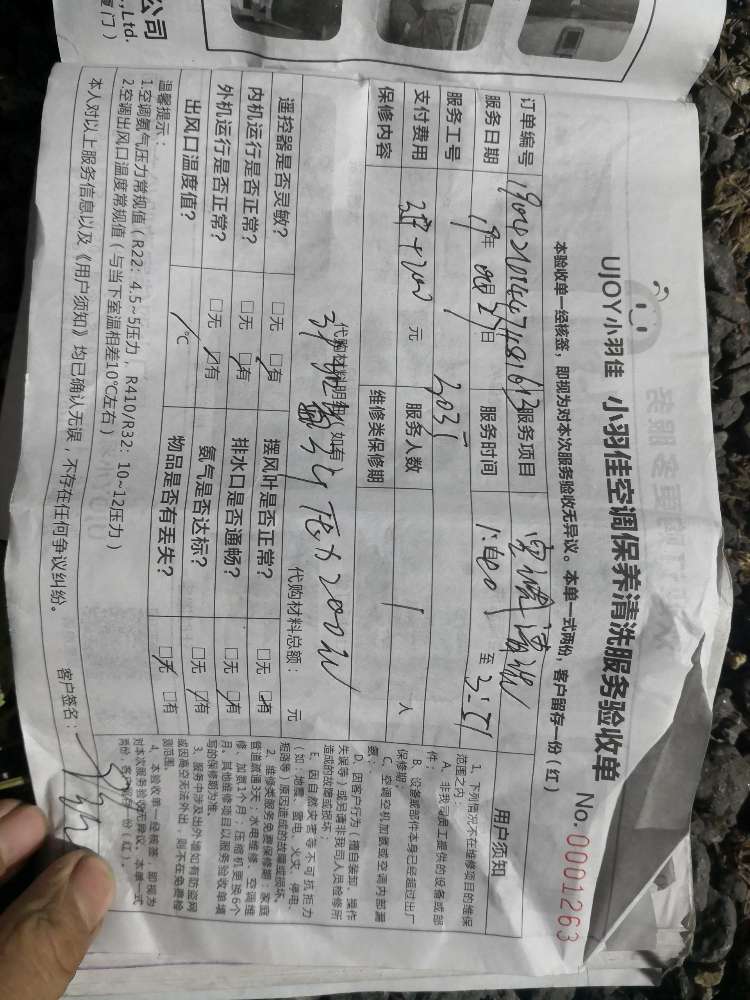 公司
., Ltd.
厦门）
UJOY小羽佳 小羽佳空调保养清洗服务验收单
No. 0001263
本验收单一经核签，即视为对本次服务验收无异议。本单一式两份，客户留存一份（红）
订单编号 服务项目
服务日期 19年 月 日 服务时间 至 3:51
服务工号 2035
支付费用 元 服务人数 1 人
保修内容 维修类保修期
代购材料明细（如有）
200元
代购材料总额： 元
遥控器是否灵敏？ □无 □有 摆风叶是否正常？ □无 □有
内机运行是否正常？ □无 □有 排水口是否通畅？ □无 □有
外机运行是否正常？ □无 □有 氨气是否达标？ □无 □有
出风口温度值？ ℃ 物品是否有丢失？ □无 □有
温馨提示：
1.空调氨气压力常规值（R22：4.5~5压力，R410/R32：10~12压力）
2.空调出风口温度常规值（与当下室温相差10℃左右）
本人对以上服务信息以及《用户须知》均已确认无误，不存在任何争议纠纷。
客户签名：
用户须知
1、下列情况不在维修项目的维保
范围之内：
A、非我司员工提供的设备或部
件；
B、设备或部件本身已经超过出厂
保修期；
C、空调空机加氨或空调内部漏
氨；
D、因客户行为（擅自装卸、操作
失误等）或另请非我司人员检修所
造成的故障或损坏；
E、因自然灾害等不可抗拒力
（如：地震、雷电、火灾、停电、
短路等）原因造成的故障或损坏。
2、维修类服务免费保修期：家庭
管道疏通3天；水电维修、空调维
修、加氨1个月；压缩机更换6个
月；其他维修项目以服务验收单填
写的保修期为准。
3、服务中涉及出外墙如有防盗网
或因高空无法外出，则不在免费检
测范围。
4、本验收单一经核签，即视为
对本次服务验收无异议，本单一式
两份，客户留存一份（红）。